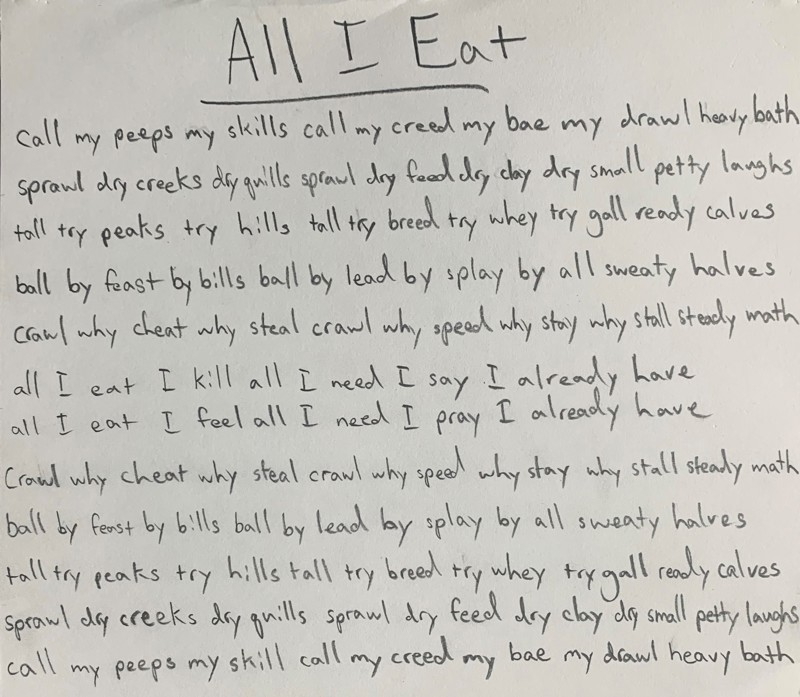 All I Eat
Call my peeps my skills call my creed my bae my drawl heavy bath
sprawl dry creeks dry quills sprawl dry feed dry clay dry small petty laughs
tall try peaks try hills tall try breed try whey try gall ready calves
ball by feast by bills ball by lead by splay by all sweaty halves
Crawl why cheat why steal crawl why speed why stay why stall steady math
all I eat I kill all I need I say I already have
all I eat I feel all I need I pray I already have
Crawl why cheat why steal crawl why speed why stay why stall steady math
ball by feast by bills ball by lead by splay by all sweaty halves
tall try peaks try hills tall try breed try whey try gall ready calves
sprawl dry creeks dry quills sprawl dry feed dry clay dry small petty laughs
call my peeps my skill call my creed my bae my drawl heavy bath